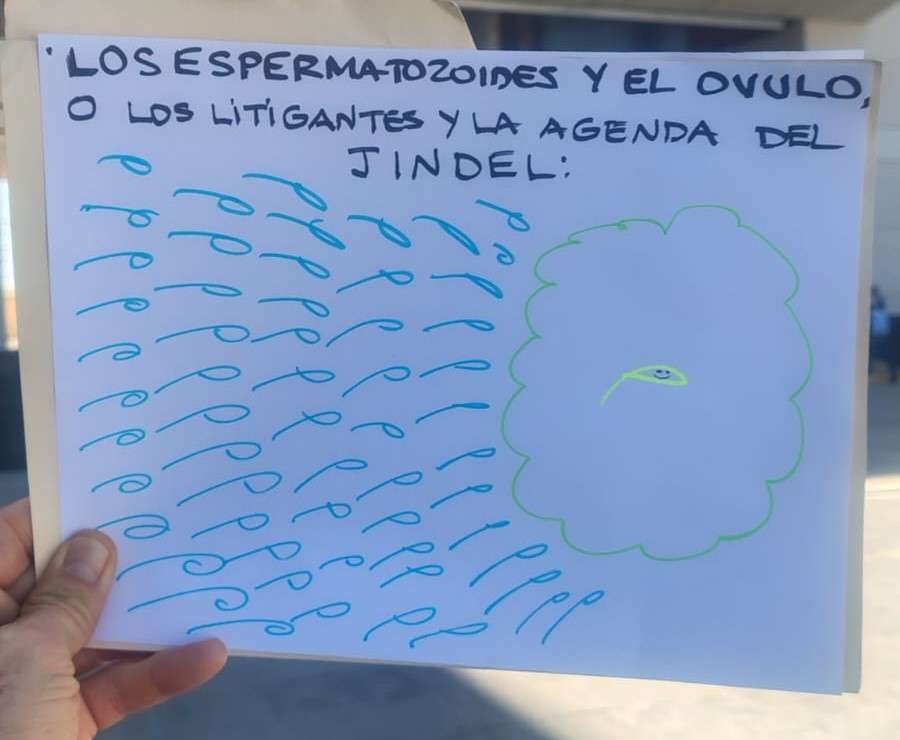 ·LOS ESPERMATOZOIDES Y EL OVULO,
O LOS LITIGANTES Y LA AGENDA DEL
JINDEL: